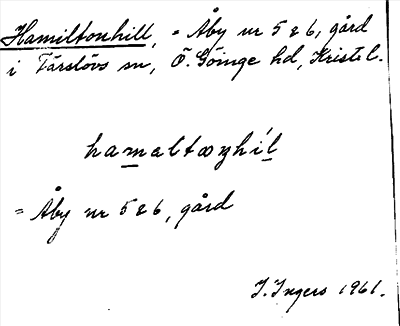 Hamiltonhill, = Åby nr 5 & 6, gård
i Färlövs sn, Ö. Göinge hd, Kristel.
hamaltoŋhíl
= Åby nr 5 & 6, gård
I. Ingers 1961.